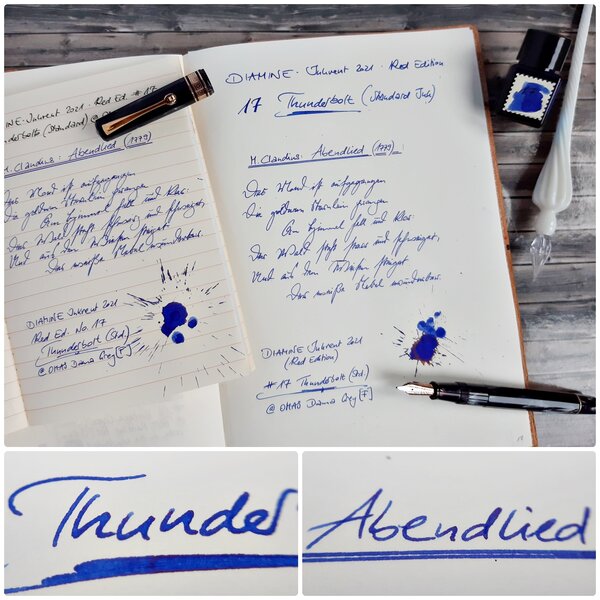 MINE Inkvent 2021 - Red Ed. # 17
(Standard)
M. Claudius: Abendlied (1779)
Der Mond ist aufgegangen
Die goldnen Sternlein prangen
Am Himmel hell und klar.
Der Wald steht schwarz und schweiget,
Und aus den Wiesen steiget
Der weiße Nebel wunderbar.
DIAMINE Inkvent 2021
Red Ed. No. 17
Thunderbolt (Std.)
@ OMAS Dama Grey [F]
DIAMINE · Inkvent 2021 · Red Edition
17 Thunderbolt (Standard Ink)
M. Claudius: Abendlied (1779)
Der Mond ist aufgegangen
Die goldnen Sternlein prangen
Am Himmel hell und klar
Der Wald steht schwarz und schweiget,
Und aus den Wiesen steiget
Der weiße Nebel wunderbar.
DIAMINE Inkvent 2021
(Red Edition)
# 17 Thunderbolt (Std.)
@ OMAS Dama Grey [F]
Thunder
Abendlied